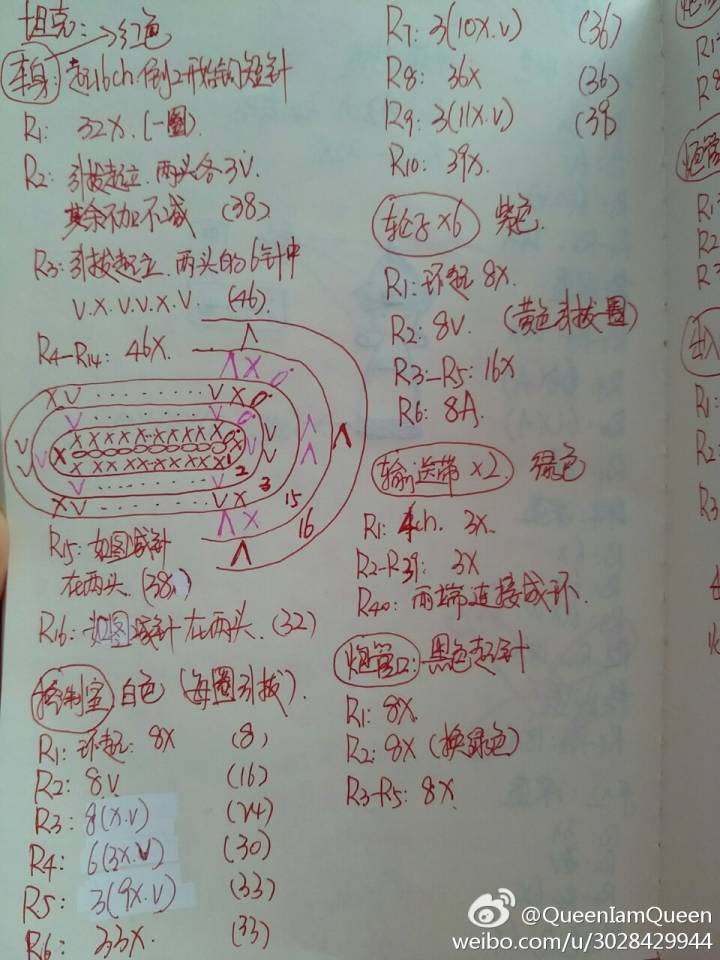 坦克: 红色
车身: 起16ch.倒2开始钩短针
R1: 32X.(一圈)
R2: 引拔起立.两头各3V.
其余不加不减 (38)
R3: 引拔起立.两头的6针中
V.X.V.V.X.V. (46)
R4-R14: 46X.
R15: 如图减针
在两头.(38)
R16: 如图减针在两头.(32)
控制室 白色 (每圈引拔).
R1: 环起: 8X (8)
R2: 8V (16)
R3: 8(X.V) (24)
R4: 6(3X.V) (30)
R5: 3(9X.V) (33)
R6: 33X. (33)
R7: 3(10X.V) (36)
R8: 36X (36)
R9: 3(11X.V) (39
R10: 39X.
轮子×6 紫色.
R1: 环起 8X.
R2: 8V. (黄色引拔一圈)
R3-R5: 16X
R6: 8A.
输送带×2. 绿色
R1: 4ch. 3X.
R2-R39: 3X
R40: 两端连接成环.
炮管口: 黑色起针
R1: 8X.
R2: 8X (换绿色)
R3-R5: 8X.
@QueenIamQueen
weibo.com/u/3028429944